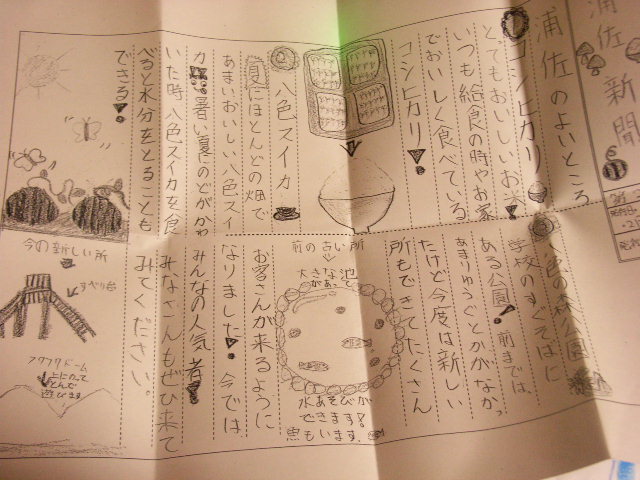 浦佐新聞
浦佐のよいところ
コシヒカリ
とってもおいしいお米
いつも給食の時やお家
でおいしく食べている
コシヒカリ!
八色スイカ
夏にほとんどの畑で
あまいおいしい八色スイ
カ!!!暑い夏にのどがかわ
いた時八色スイカを食
べると水分をとることも
できる!
色の森公園
学校のすぐそばに
ある公園!前までは、
あまりゆうぐとかがなかっ
たけど今度は新しい
所もできてたくさん
前の古い所
大きな池
があって
水あそびが
お客さんが来るように
なりました!今では
みんなの人気者!
みなさんもぜひ来て
みてください。
今の新しい所
すべり台
フワフワドーム
上にのって
とんで
遊びます。